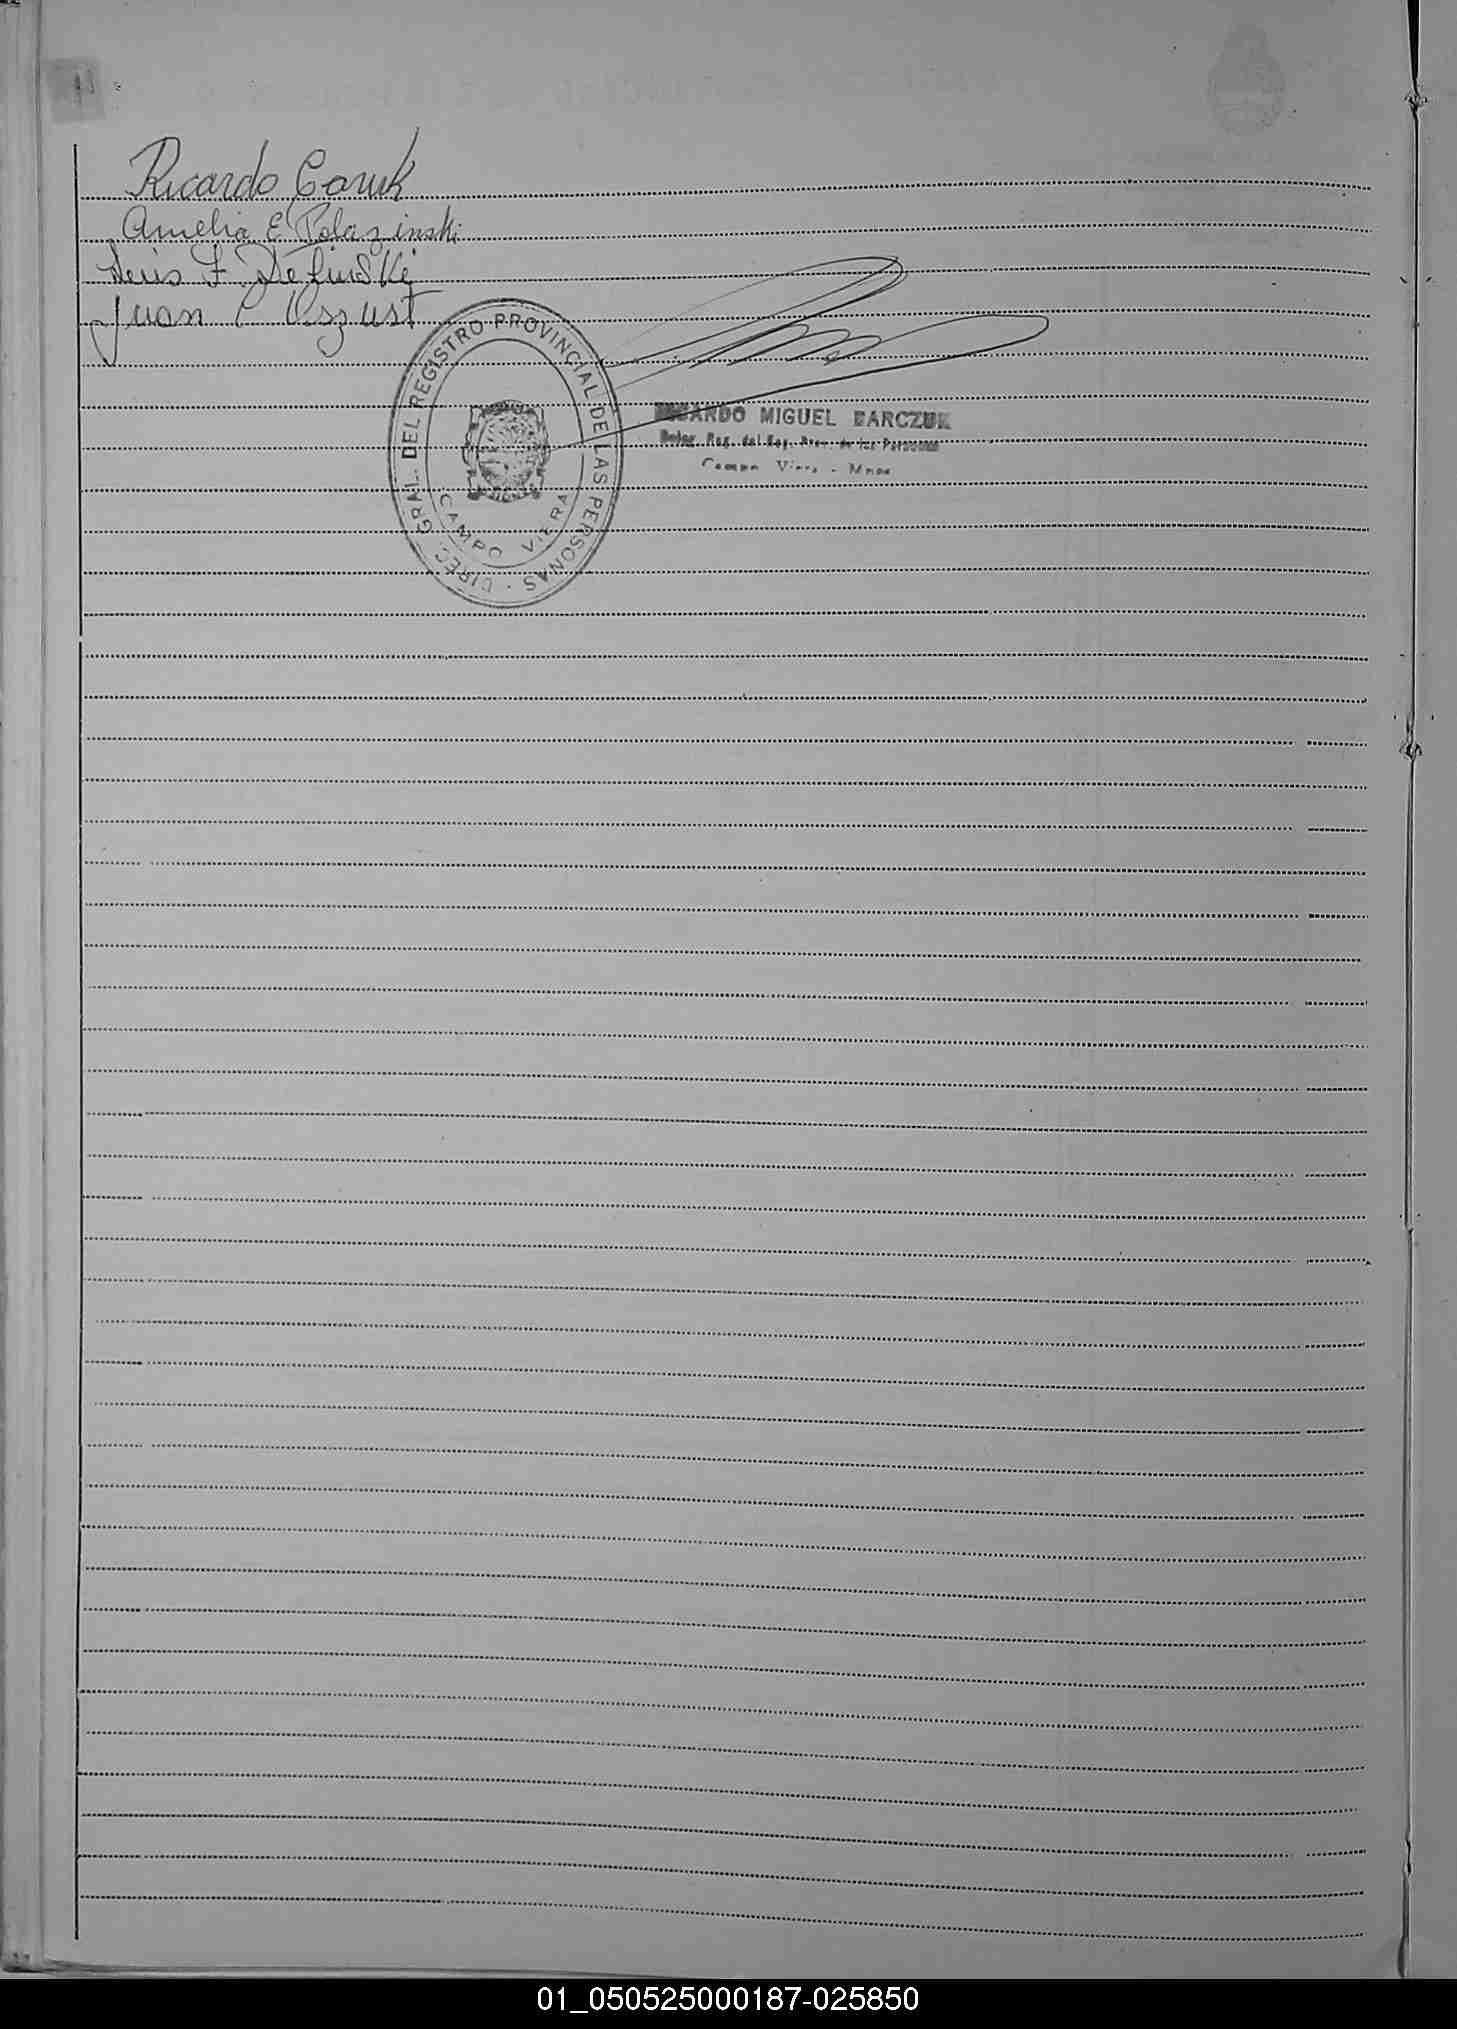 Ricardo Caruk
Amelia E Polazinski
Luis F. Delinski
Juan C Uszust
DIREC. GRAL. DEL REGISTRO PROVINCIAL DE LAS PERSONAS
CAMPO VIERA
MIGUEL BARCZUK
Reg. del Reg. Prov. de las Personas
Campo Viera - Mnes
01_050525000187-025850